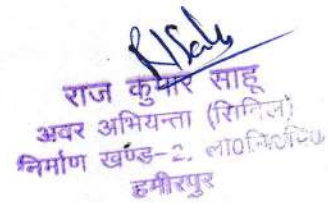 राज कुमार साहू
अवर अभियन्ता (सिविल)
निर्माण खण्ड-2, लो०नि०वि०
हमीरपुर